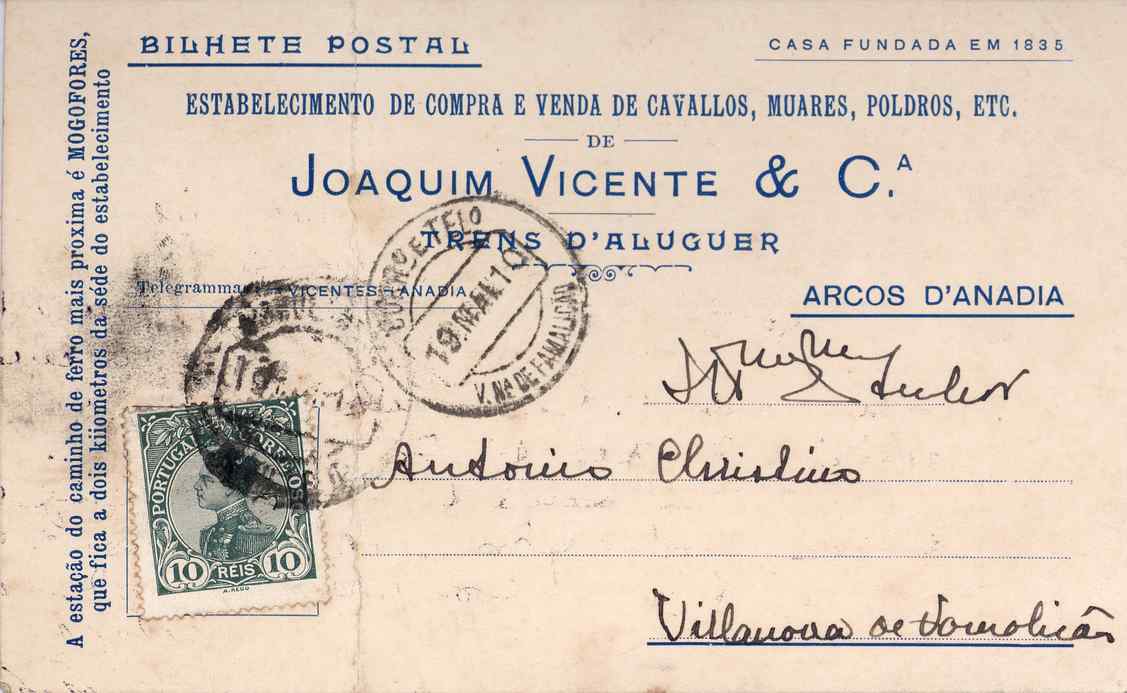 BILHETE POSTAL
CASA FUNDADA EM 1835
ESTABELECIMENTO DE COMPRA E VENDA DE CAVALLOS, MUARES, POLDROS, ETC.
DE
JOAQUIM VICENTE & C.A
TRENS D'ALUGUER
Telegrammas VICENTES-ANADIA
ARCOS D'ANADIA
A estação do caminho de ferro mais proxima é MOGOFORES,
que fica a dois kilometros da séde do estabelecimento
CORREIO E TELO
19 MAI 10
V. Na DE FAMALICÃO
Senhor
Antonio Christino
Villanova de Famalicão
PORTUGAL CORREIOS
10 REIS 10